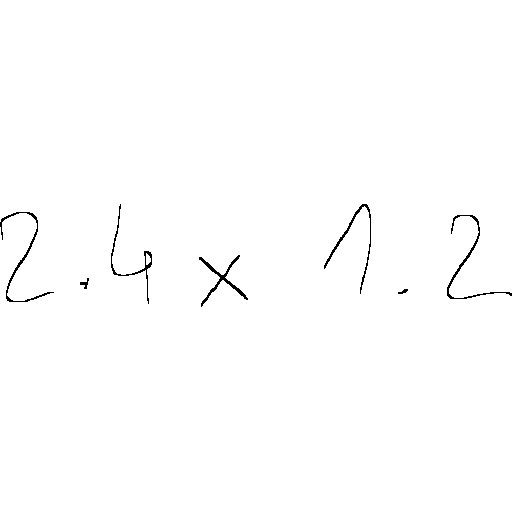 2.4 × 1.2